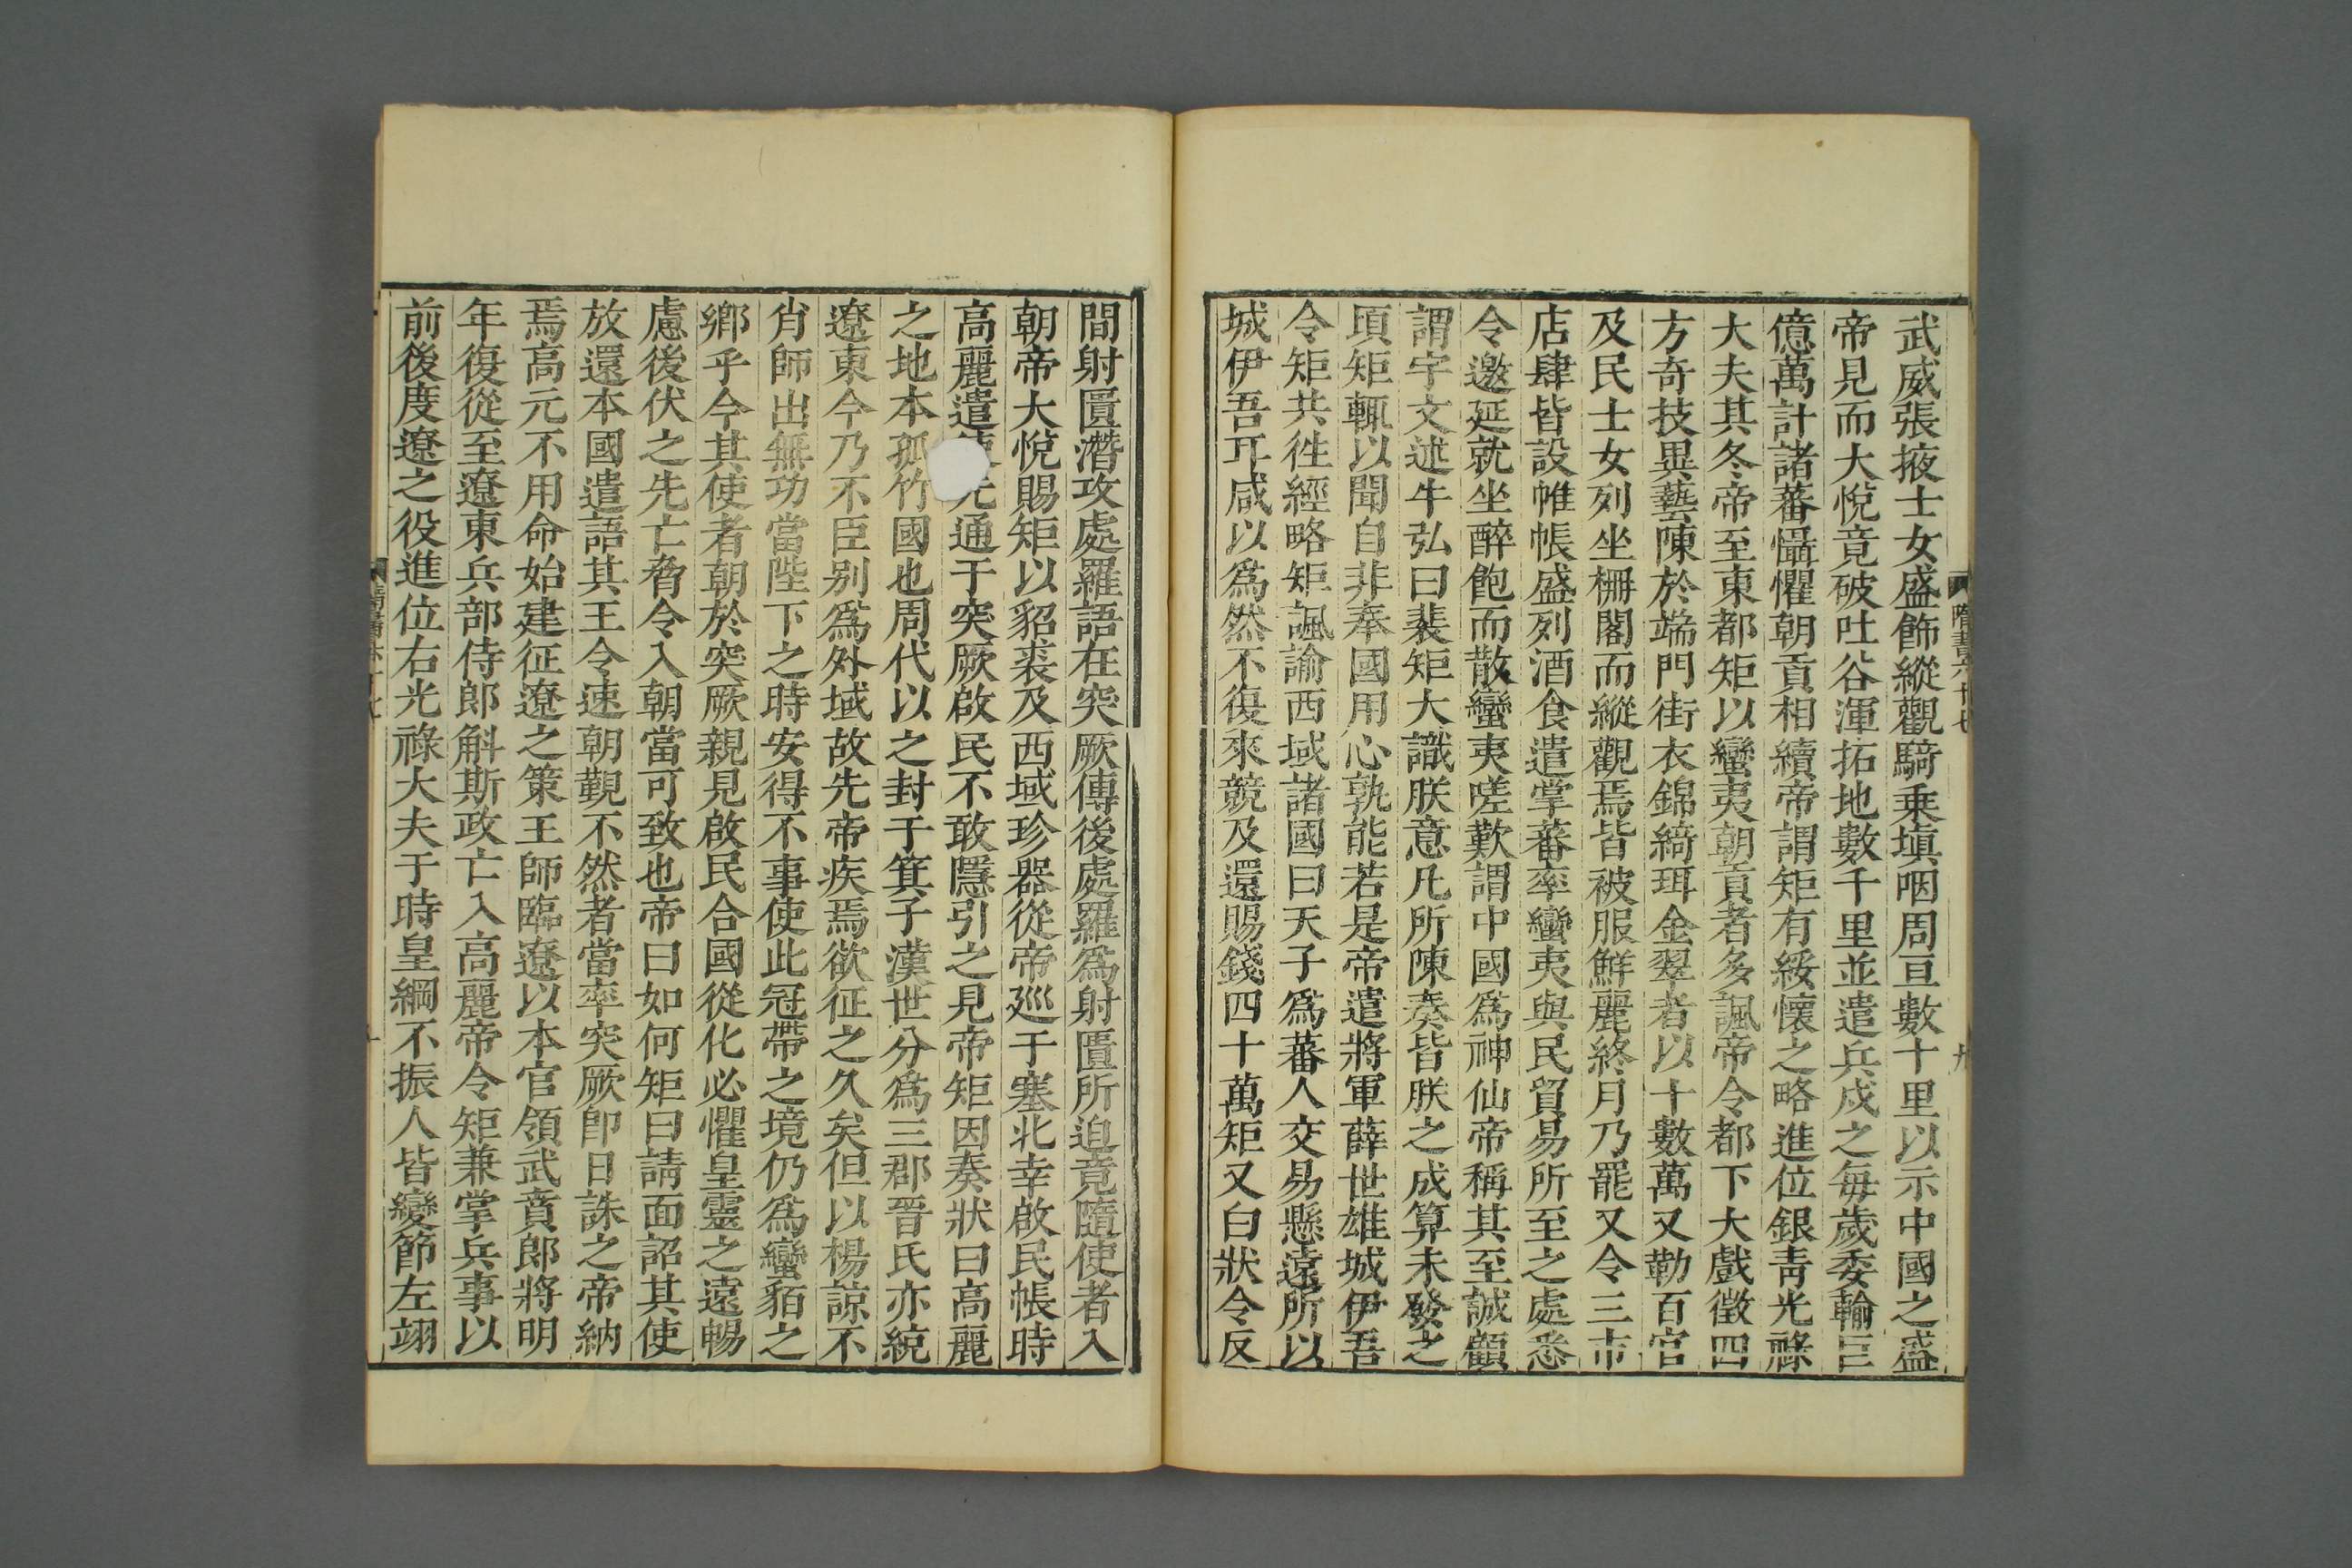 武威張掖士女盛飾縱觀騎乗塡咽周亘數十里以示中國之盛
帝見而大悅竟破吐谷渾拓地數千里並遣兵戍之每歲委輸巨
億萬計諸蕃懾懼朝貢相續帝謂矩有綏懷之略進位銀靑光祿
大夫其冬帝至東都矩以蠻夷朝貢者多諷帝令都下大戲徵四
方奇技異藝陳於端門街衣錦綺珥金翠者以十數萬又勒百官
及民士女列坐棚閣而縱觀焉皆被服鮮麗終月乃罷又令三市
店肆皆設帷帳盛列酒食遣掌蕃率蠻夷與民貿易所至之處悉
令邀延就坐醉飽而散蠻夷嗟歎謂中國爲神仙帝稱其至誠顧
謂宇文述牛弘曰裴矩大識朕意凡所陳奏皆朕之成算未發之
頃矩輒以聞自非奉國用心孰能若是帝遣將軍薛世雄城伊吾
令矩共徃經略矩諷諭西域諸國曰天子爲蕃人交易懸遠所以
城伊吾耳咸以爲然不復來競及還賜錢四十萬矩又白狀令反
隋書六十七
間射匱潛攻處羅語在突厥傳後處羅爲射匱所迫竟隨使者入
朝帝大悅賜矩以貂裘及西域珍器從帝廵于塞北幸啟民帳時
高麗遣先通于突厥啟民不敢隱引之見帝矩因奏狀曰高麗
之地本孤竹國也周代以之封于箕子漢世分爲三郡晉氏亦統
遼東今乃不臣别爲外域故先帝疾焉欲征之久矣但以楊諒不
肖師出無功當陛下之時安得不事使此冠帶之境仍爲蠻貊之
鄉乎今其使者朝於突厥親見啟民合國從化必懼皇靈之遠暢
慮後伏之先亡脅令入朝當可致也帝曰如何矩曰請面詔其使
放還本國遣語其王令速朝覲不然者當率突厥卽日誅之帝納
焉高元不用命始建征遼之策王師臨遼以本官領武賁郎將明
年復從至遼東兵部侍郎斛斯政亡入高麗帝令矩兼掌兵事以
前後度遼之役進位右光祿大夫于時皇綱不振人皆變節左翊